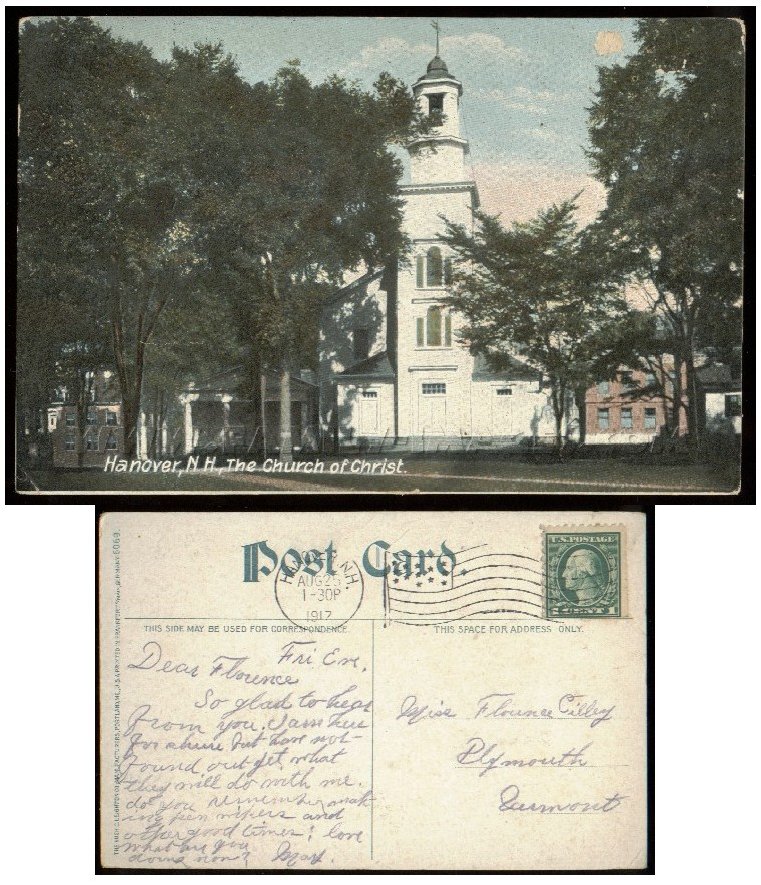 Hanover, N.H., The Church of Christ.
Post Card.
HANOVER, N.H.
AUG 25
1-30P
1917
U.S. POSTAGE
1 CENT 1
THIS SIDE MAY BE USED FOR CORRESPONDENCE.
THIS SPACE FOR ADDRESS ONLY.
Fri Eve.
Dear Florence
So glad to hear
from you. I am here
for a but have not
found out yet what
they will do with me.
do you remember mak-
ing pen wipers and
other good times; love
what are you
doing now? Mary.
Miss Florence Cilley
Plymouth
Vermont